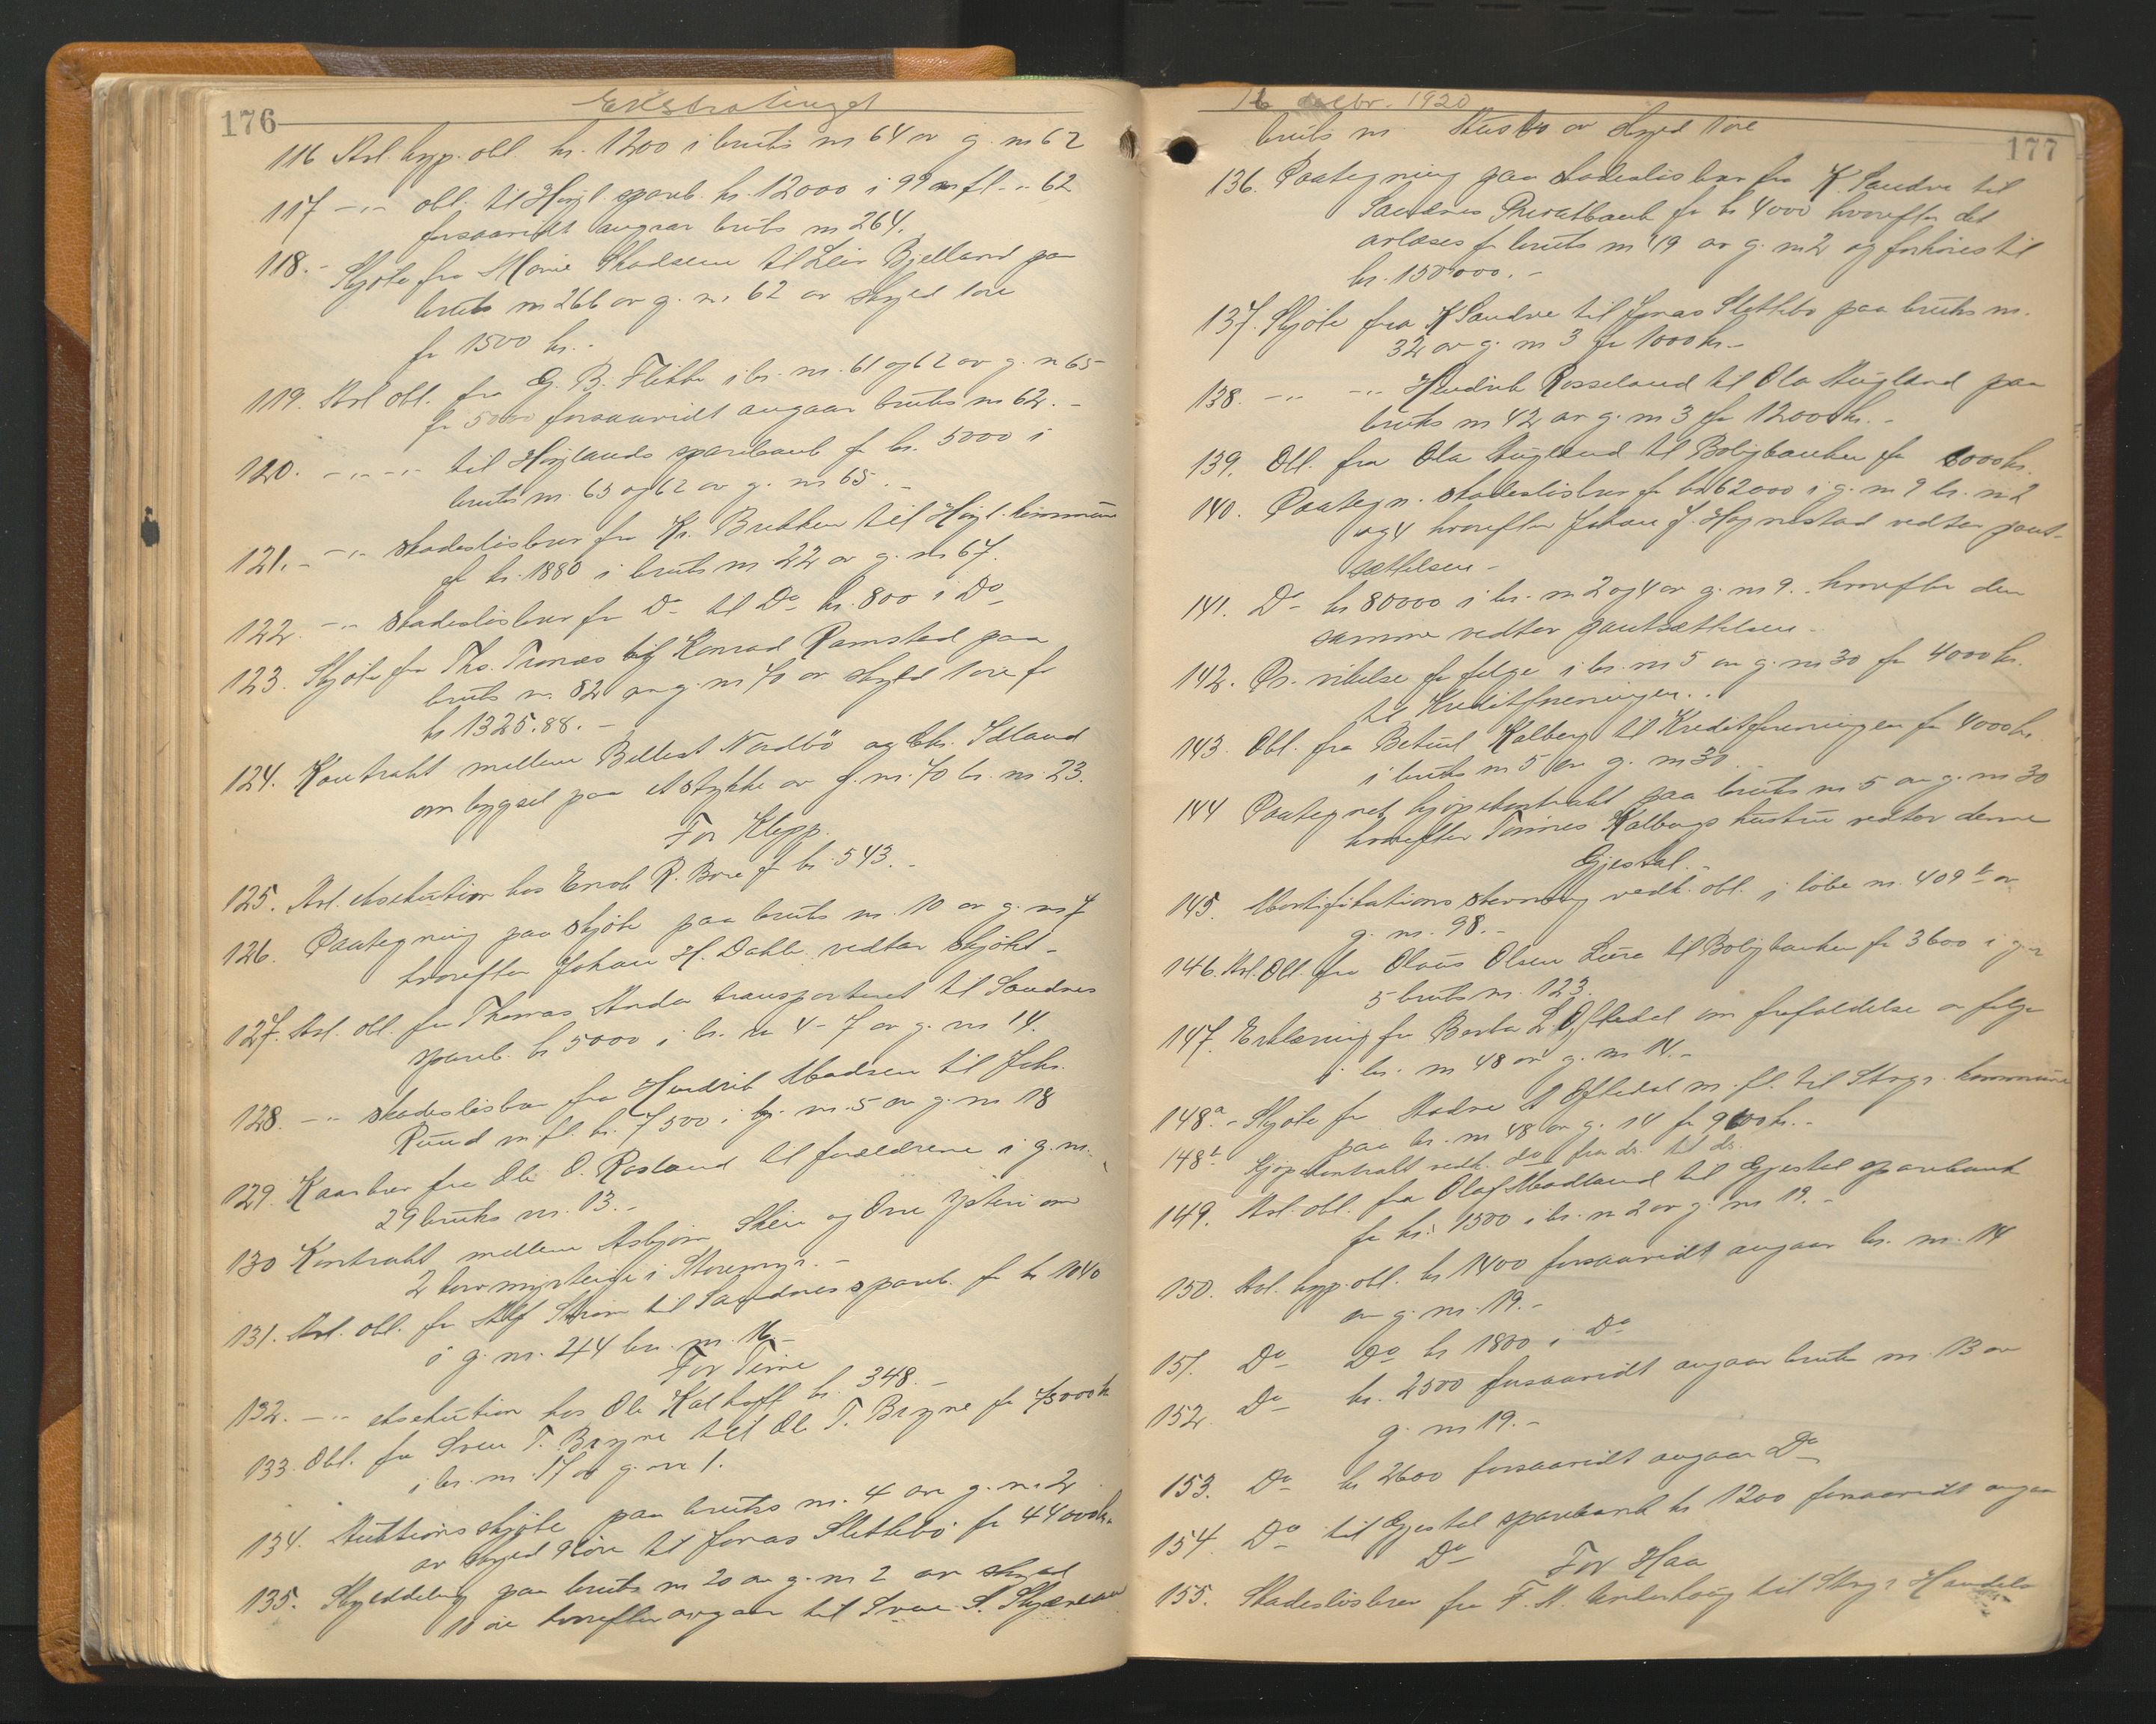 176
Ekstratinget
116 Avl. hyp. obl. kr. 1200 i bruks nr 64 av g. nr 62
117 -"- obl. til Høgl. spareb. kr. 12000 i 99 m fl. " 62
forsaavidt angaar bruks nr 264.
118.- Skjøte fra Marie Skadsem til Leiv Bjelland paa
bruks nr 266 av g. nr 62 av skyld 1 øre
for 1500 kr.-
119. Avl obl. fra G. B. Flikke i br. nr. 61 og 62 av g. nr 65
fr 5000 forsaavidt angaar bruks nr 62.-
120. -"- -"- til Høglands sparebank for kr. 5000 i
bruks nr. 63 og 62 av g. nr 65.-
121.- -"- skadesløsbrev fra Kr. Brekken til Høgl. kommune
for kr. 1880 i bruks nr 22 av g. nr 67.
122. -"- skadesløsbrev fra Do til Do kr. 800 i Do
123. Skjøte fra Ths. Tronæs til Konrad Ramstad paa
bruks nr. 82 av g. nr 70 av skyld 1 øre for
kr 1325.88.-
124. Kontrakt mellem Bellest Nordbö og Chr. Idland
om bygsel paa et stykke av g. nr. 70 br. nr 23.
For Klepp.
125. Avl. eksekution hos Enok R. Bore for kr. 543.-
126. Paategning paa skjøte paa bruks nr. 10 av g. nr 7
hvorefter Johan H. Dahle vedtar skjøtet-
127. Avl. obl. fra Thomas Anda transporteret til Sandnes
spareb. kr 5000 i br. nr 4-7 av g. nr 14.
128. -"- skadesløsbrev fra Hendrik Madsen til Johs.
Ruud m. fl. kr. 7500 i br. nr. 5 av g. nr 18
129. Kaarbrev fra Ole O. Rosland til forældrene i g. nr.
29 bruks nr. 13.-
130 Kontrakt mellem Asbjørn Skeie og Orre Ysteri om
2 torvmyrteige i Storemyr.-
131. Avl. obl. fra Alf Strøm til Sandnes spareb. for kr 1040
i g. nr. 44 br. nr. 16-
For Time
132. -"- eksekution hos Ole Kalhoff kr. 348.-
133. Obl. fra Sven T. Bryne til Ole T. Bryne for 73000 kr
i br. nr. 17 av g. nr 1.
134. Auktionsskjøte paa bruks nr. 4 av g. nr. 2
av skyld 91 øre til Jonas Slettebø for 44000 kr.
135. Skylddeling paa bruks nr 20 av g. nr 2 av skyld
10 øre hvorefter avgaar til Svend S. Skjæveland
16 decbr. 1920
177
bruks nr. Husbo av skyld 1 øre
136. Paategning paa skadesløsbrev fra K. Sandve til
Sandnes Privatbank for kr 4000 hvorefter det
avløses fr bruks nr 19 av g. nr 2 og forhøies til
kr. 150000.-
137. Skjøte fra K Sandve til Jonas Slettebø paa bruks nr.
32 av g. nr 3 for 1000 kr-
138. -"- -"- Hendrik Rosseland til Ola Haugland paa
bruks nr 42 av g. nr 3 for 12000 kr.-
139. Obl. fra Ola Haugland til Boligbanken for 6000 kr.
140. Paategn. skadesløsbrev for kr 62000 i g. nr 9 br. nr 2
og 4 hvorefter Johan J. Hognestad vedtar pant-
sættelsen-
141. Do kr 80000 i br. nr 2 og 4 av g. nr 9. hvorefter den
samme vedtar pantsættelsen-
142. Pr. vikelse for følge i br. nr 5 av g. nr 30 for 4000 kr.
til Kreditforeningen..
143. Obl. fra Betuel Kalberg til Kreditforeningen for 4000 kr.
i bruks nr 5 av g. nr 30.
144 Paategnet kjøpekontrakt paa bruks nr 5 av g. nr 30
hvorefter Tønnes Kalbergs hustru vedtar denne
Gjestal.-
145. Mortifikationsstevning vedk. obl. i løbe nr. 409 b av
g. nr. 98.-
146. Avl. Obl. fra Olaus Olsen Lura til Boligbanken for 3600 i g. nr
5 bruks nr. 123.
147. Erklæring fra Berta L Oftedal om frafaldelse av følge
i br. nr 48 av g. nr 14.-
148a.- Skjøte fra Andre A Oftedal m. fl. til Stvgr. kommune
paa br. nr 48 av g. 14 for 9600 kr.-
148b Kjøpekontrakt vedk. do fra do til do.
149. Avl. obl. fra Olaf Madland til Gjestal sparebank
for kr. 1500 i br. nr 2 av g. nr 19.-
150. Avl. hyp. obl. kr 1400 forsaavidt angaar br. nr. 14
av g. nr. 19.-
151. Do Do kr 1800 i Do
152. Do kr. 2500 forsaavidt angaar bruks nr. 13 av
g. nr 19.-
153. Do kr 2600 forsaavidt angaar Do
154. Do til Gjestal sparebank kr 1200 forsaavidt angaar
Do
For Haa
155. Skadesløsbrev fra F. A. Underhaug til Stvgr Handels